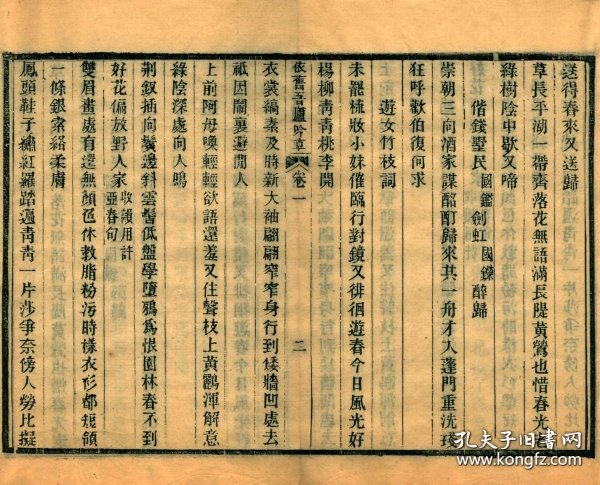 送得春來又送歸
草長平湖一帶齊落花無語滿長隄黃鶯也惜春光
綠樹陰中歇又啼
偕錢墅民國鑑劍虹國鑅醉歸
崇朝三向酒家謀酩酊歸來共一舟才入蓬門重洗琖
狂呼歡伯復何求
遊女竹枝詞
未罷梳妝小妹催臨行對鏡又徘徊遊春今日風光好
楊柳青青桃李開
依舊草廬吟草
卷一
二
衣裳縞素及時新大袖翩翩窄窄身行到矮牆凹處去
祇因鬧裏避閒人
上前阿母喚輕輕欲語還羞又住聲枝上黃鸝渾解意
綠陰深處向人鳴
荆釵插向鬢邊斜雲髻低盤學墮鴉爲恨園林春不到
好花偏放野人家
收護用計亞春句
雙眉畫處有還無顏色休教脂粉污時樣衣衫都短領
一條銀索絡柔膚
鳳頭鞋子繡紅羅踏遍青青一片莎爭奈傍人勞比擬
孔夫子旧書网
www.kongfz.com